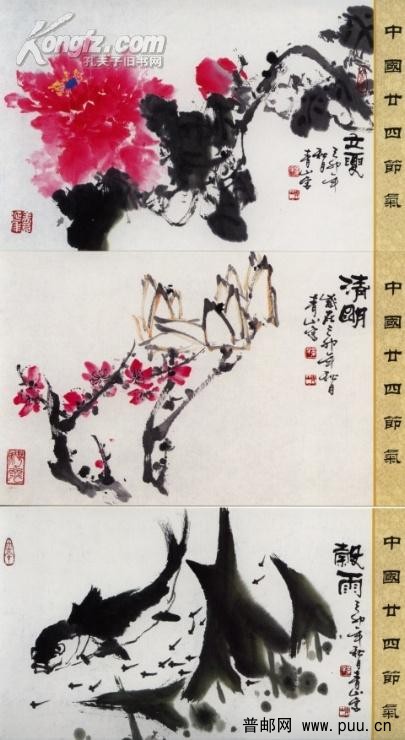 Kongfz.com
孔夫子旧书网
中國廿四節氣
立夏
己卯年
秋月
青山写
中國廿四節氣
清明
歲在己卯年秋月
青山寫
中國廿四節氣
穀雨
己卯年秋月青山写
普邮网 www.puu.cn